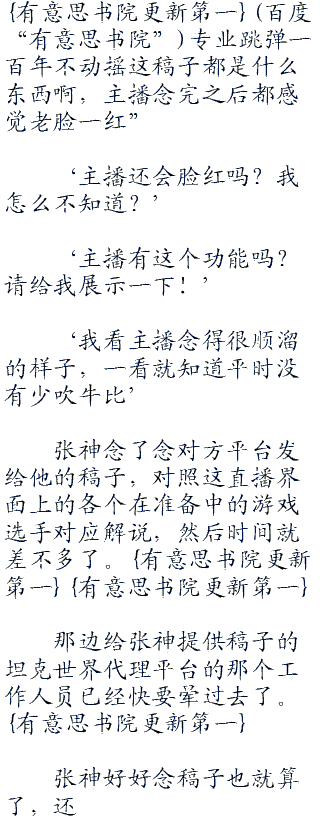 {有意思书院更新第一}(百度
“有意思书院”)专业跳弹一
百年不动摇这稿子都是什么
东西啊，主播念完之后都感
觉老脸一红”
‘主播还会脸红吗？我
怎么不知道？’
‘主播有这个功能吗？
请给我展示一下！’
‘我看主播念得很顺溜
的样子，一看就知道平时没
有少吹牛比’
张神念了念对方平台发
给他的稿子，对照这直播界
面上的各个在准备中的游戏
选手对应解说，然后时间就
差不多了。{有意思书院更新
第一}{有意思书院更新第一}
那边给张神提供稿子的
坦克世界代理平台的那个工
作人员已经快要晕过去了。
{有意思书院更新第一}
张神好好念稿子也就算
了，还